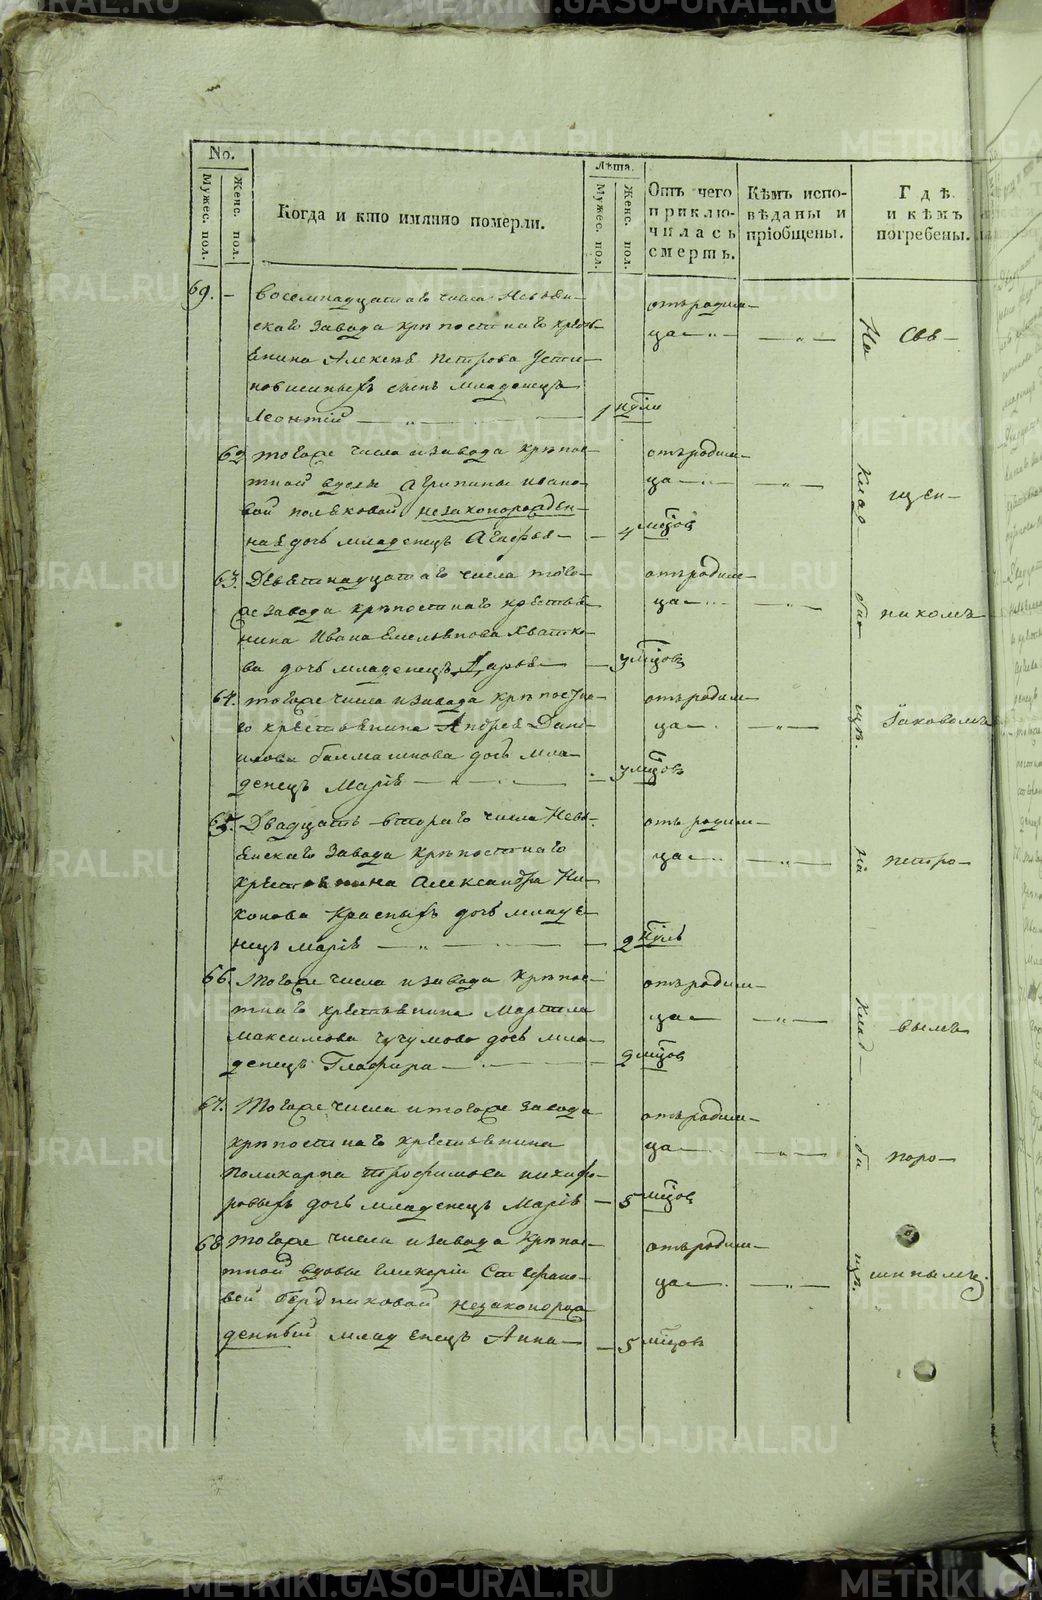 No.
Мужес. пол.
Женс. пол.
Когда и кто имянно померли.
Лѣта.
Мужес. пол.
Женс. пол.
Отъ чего приклю-чилась смерть.
Кѣмъ испо-вѣданы и пріобщены.
Гдѣ и кѣмъ погребены.
69. — восемнадцатаго числа Невьян-
скаго завода крѣпостнаго крестья-
янина Алексѣя Петрова Усти-
новисиныхъ сынъ младенецъ
Леонтій — 1 нѣли
отъ родим-
ца — „ —
62 тогоже числа и завода крѣпос-
тной вдовы Агрипины Ивано-
вой Поляковой незаконорожден-
ная дочь младенецъ Агафья — 4 мцовъ
отъ родим-
ца — „ —
63. Девятнадцатаго числа того-
же завода крѣпостнаго крестья-
нина Ивана Емельянова Хватко-
ва дочь младенецъ Дарья — 3 мцовъ
отъ родим-
ца — „ —
64. тогоже числа и завода крѣпостна-
го крестьянина Андрея Дани-
лова Балмашнова дочь мла-
денецъ Марія — 3 мцовъ
отъ родим-
ца — „ —
65. Двадцать втораго числа Невь-
янскаго завода крѣпостнаго
крестьянина Александра Ни-
конова Красныхъ дочь младе-
нецъ Марія — „ — 2 нѣль
отъ родим-
ца — „ —
66. Тогоже числа и завода крѣпос-
тнаго крестьянина Мартина
Максимова Чучумова дочь мла-
денецъ Глафира — 9 мцовъ
отъ родим-
ца — „ —
67. Тогоже числа и тогоже завода
крѣпостнаго крестьянина
Поликарпа Трофимова Никифо-
ровыхъ дочь младенецъ Марія — 5 мцовъ
отъ родим-
ца — „ —
68 тогоже числа и завода крѣпос-
тной вдовы Гликеріи Стефано-
вой Бердниковой незаконорож
денный младенецъ Анна — 5 мцовъ
отъ родим-
ца — „ —
На
клад
би
щѣ.
На
клад-
би
щѣ.
Свя-
щен-
никомъ
Іаковомъ
Петро-
вымъ
Поро-
шинымъ.
METRIKI.GASO-URAL.RU